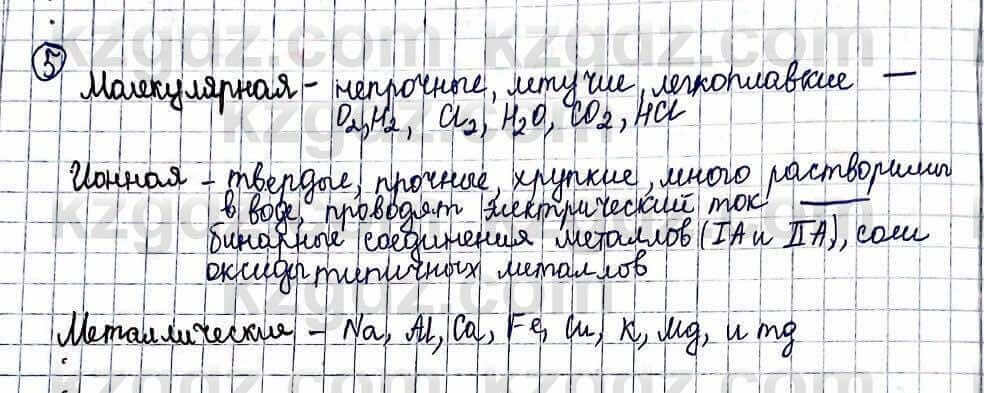 5
Малекулярная - непрочные, летучие, легкоплавкие —
O2, H2, Cl2, H2O, CO2, HCl
Ионная - твердые, прочные, хрупкие, много растворимы
в воде, проводят электрический ток —
бинарные соединения металлов (IA и IIA), соли
оксиды типичных металлов
Металлические - Na, Al, Ca, Fe, Cu, K, Mg, и тд
kzgdz.com